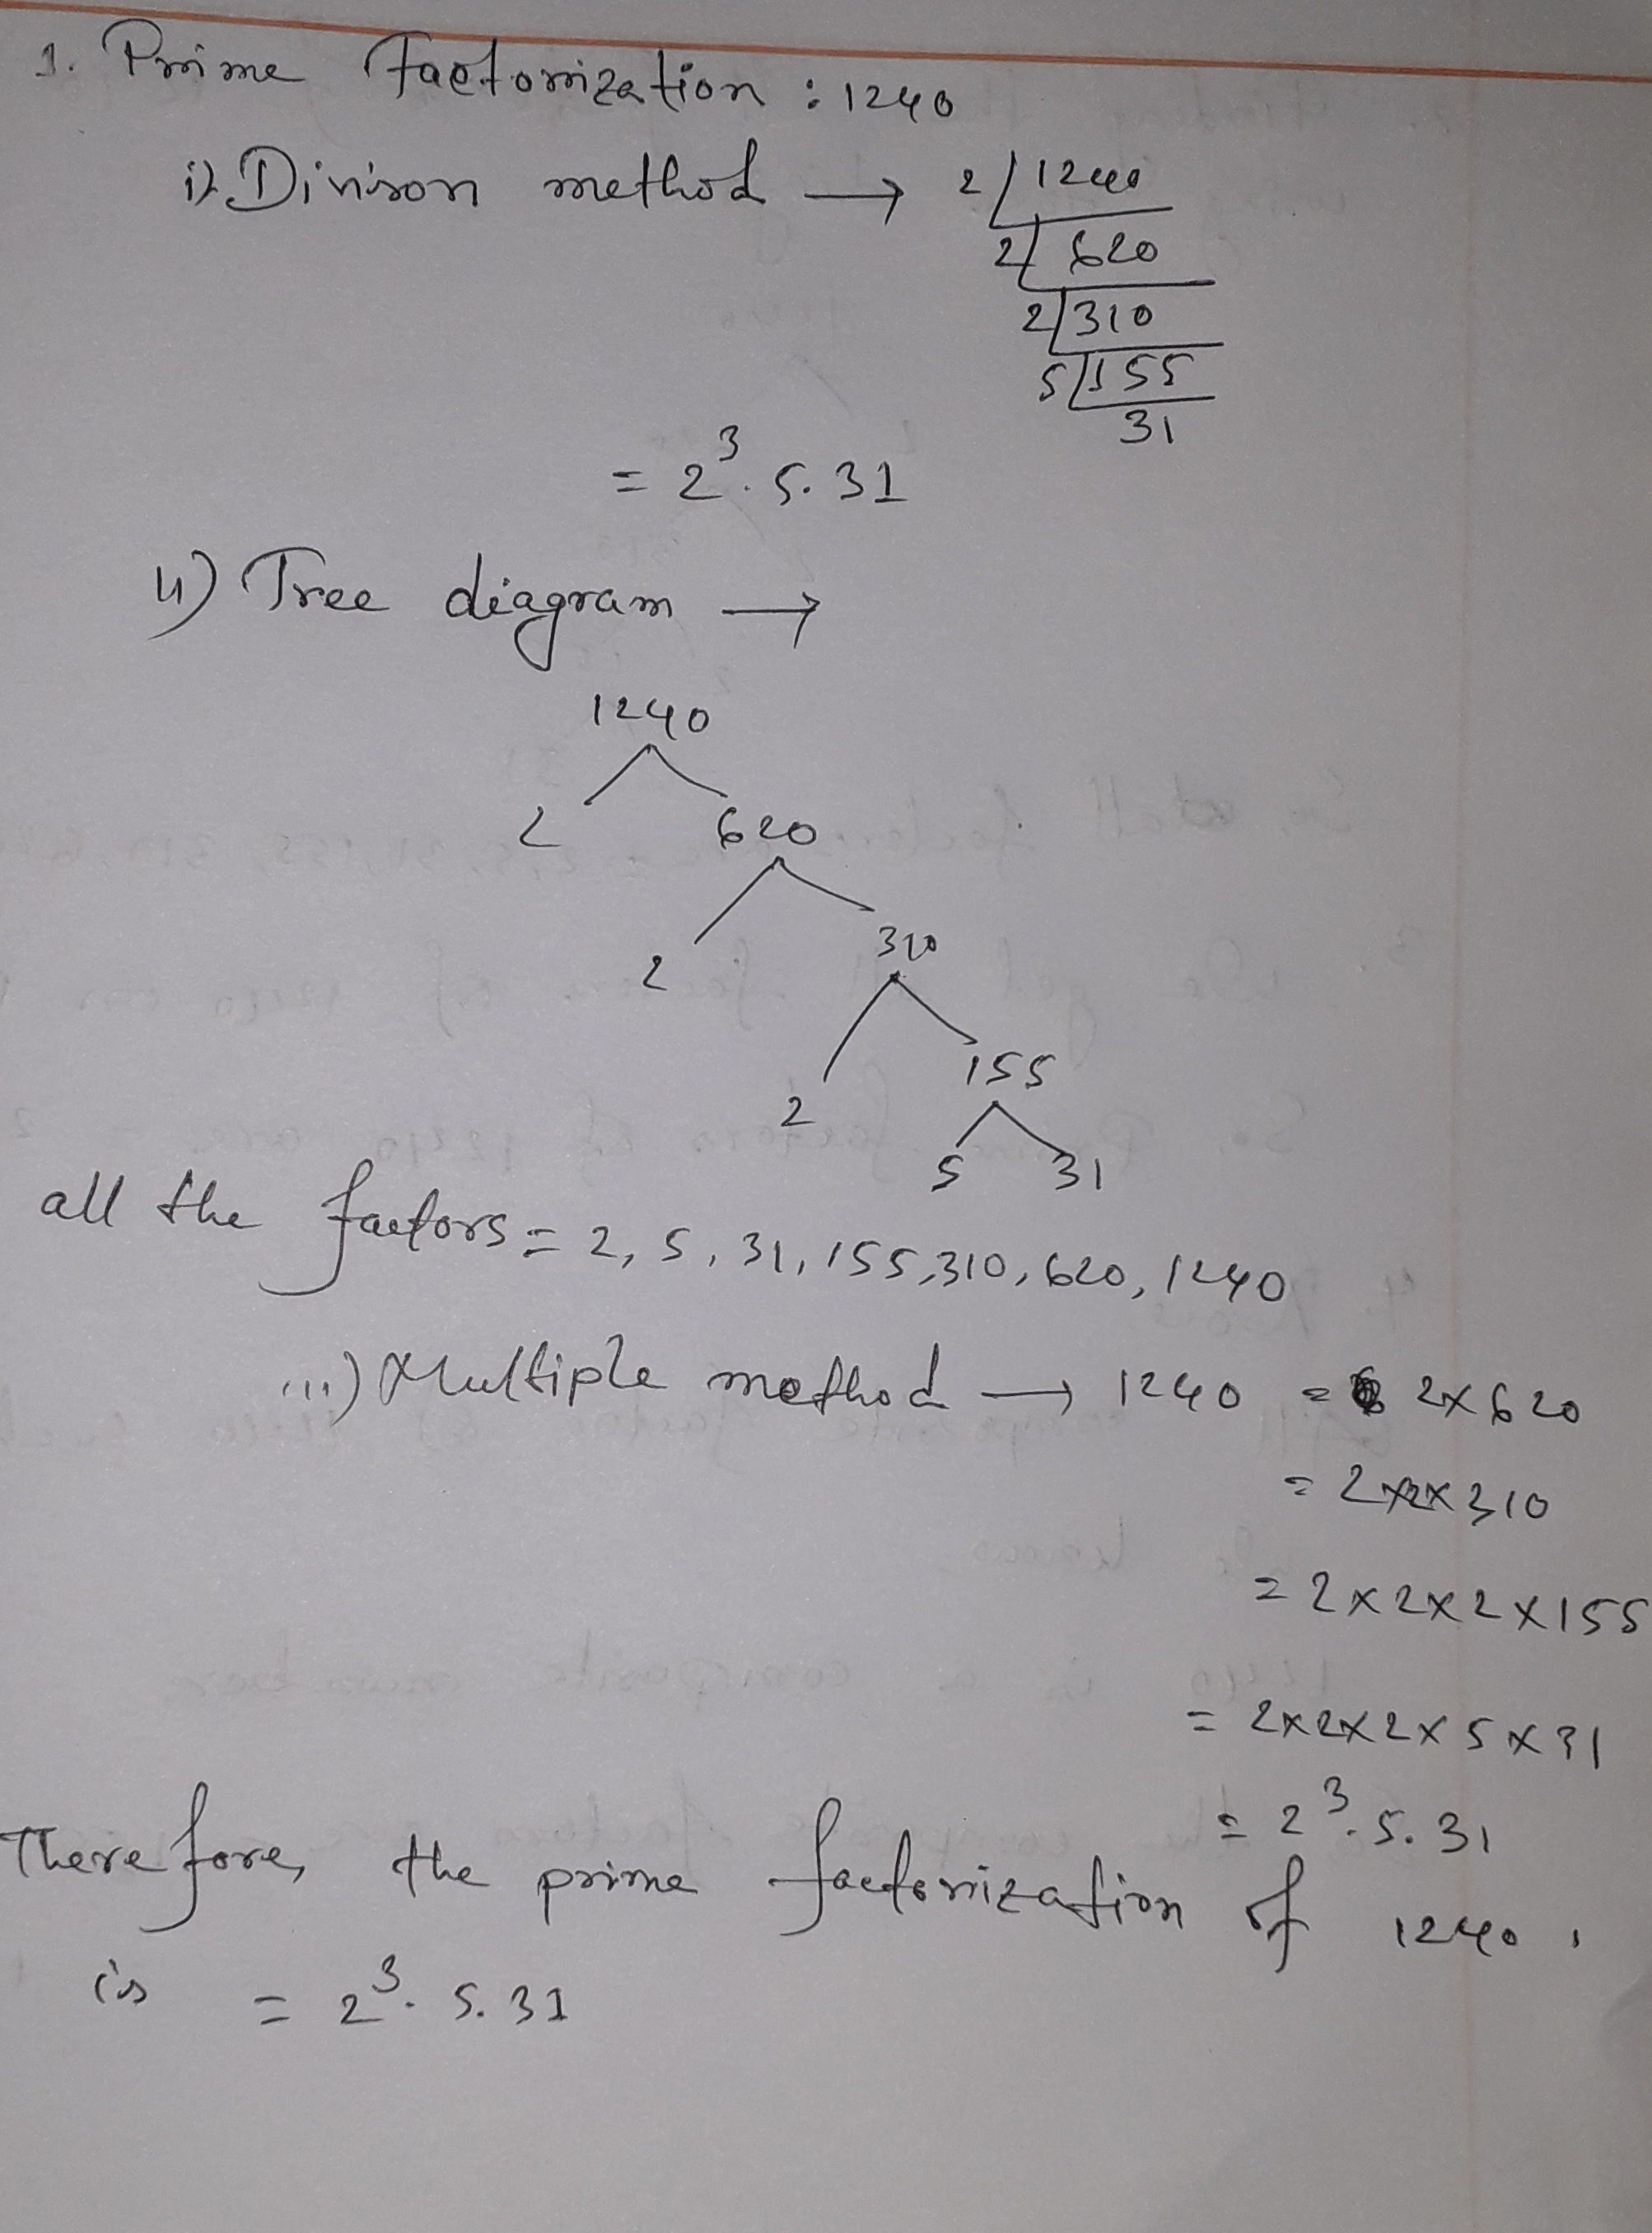 1. Prime Factorization : 1240
i) Divison method → 2/1240
2/620
2/310
5/155
31
= 2³.5.31
ii) Tree diagram →
1240
2 620
2 310
2 155
5 31
all the factors = 2, 5, 31, 155, 310, 620, 1240
iii) Multiple method → 1240 = 2×620
= 2×2×310
= 2×2×2×155
= 2×2×2×5×31
= 2³.5.31
Therefore, the prime factorization of 1240,
is = 2³.5.31